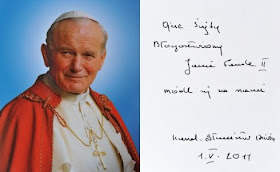 Ojcze Święty
Błogosławiony
Janie Pawle II
módl się za nami
Kard. Stanisław Dziwisz
1.V.2011